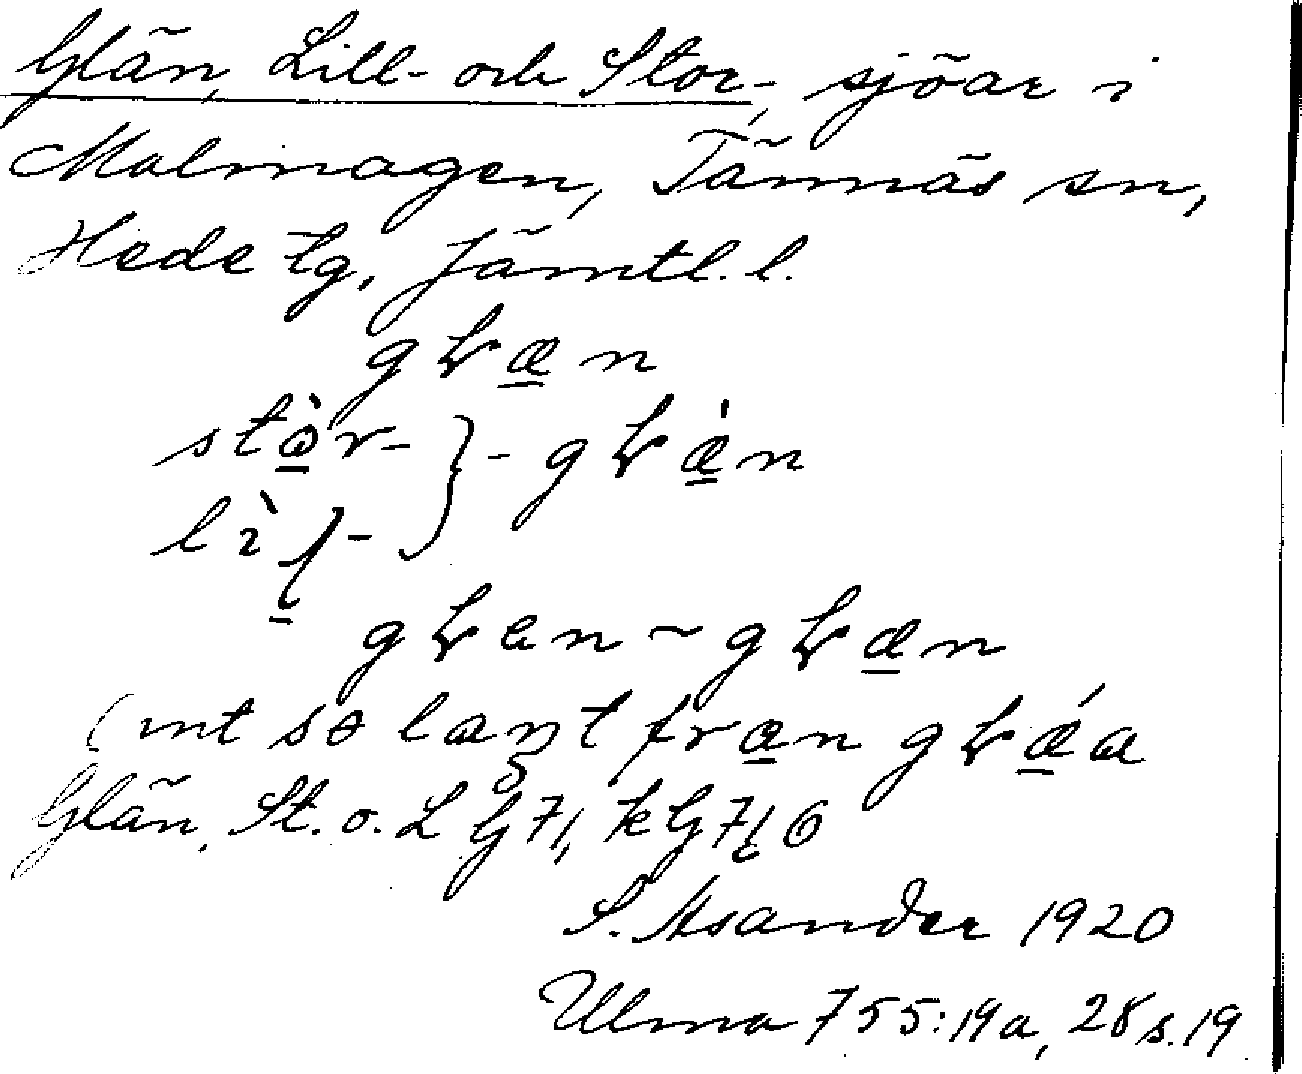 Glän, Lill- och Stor-, sjöar i
Malmagen, Tännäs sn,
Hede tg, Jämtl. l.
gƚæn
stòr- } -gƚæ̀n
lìɭ-
gƚen ~ gƚæn
(int so laŋt fræn gƚǽa
Glän, St. o. L G71, kG71 6
S. Asander 1920
Ulma 755:19a, 28 s. 19